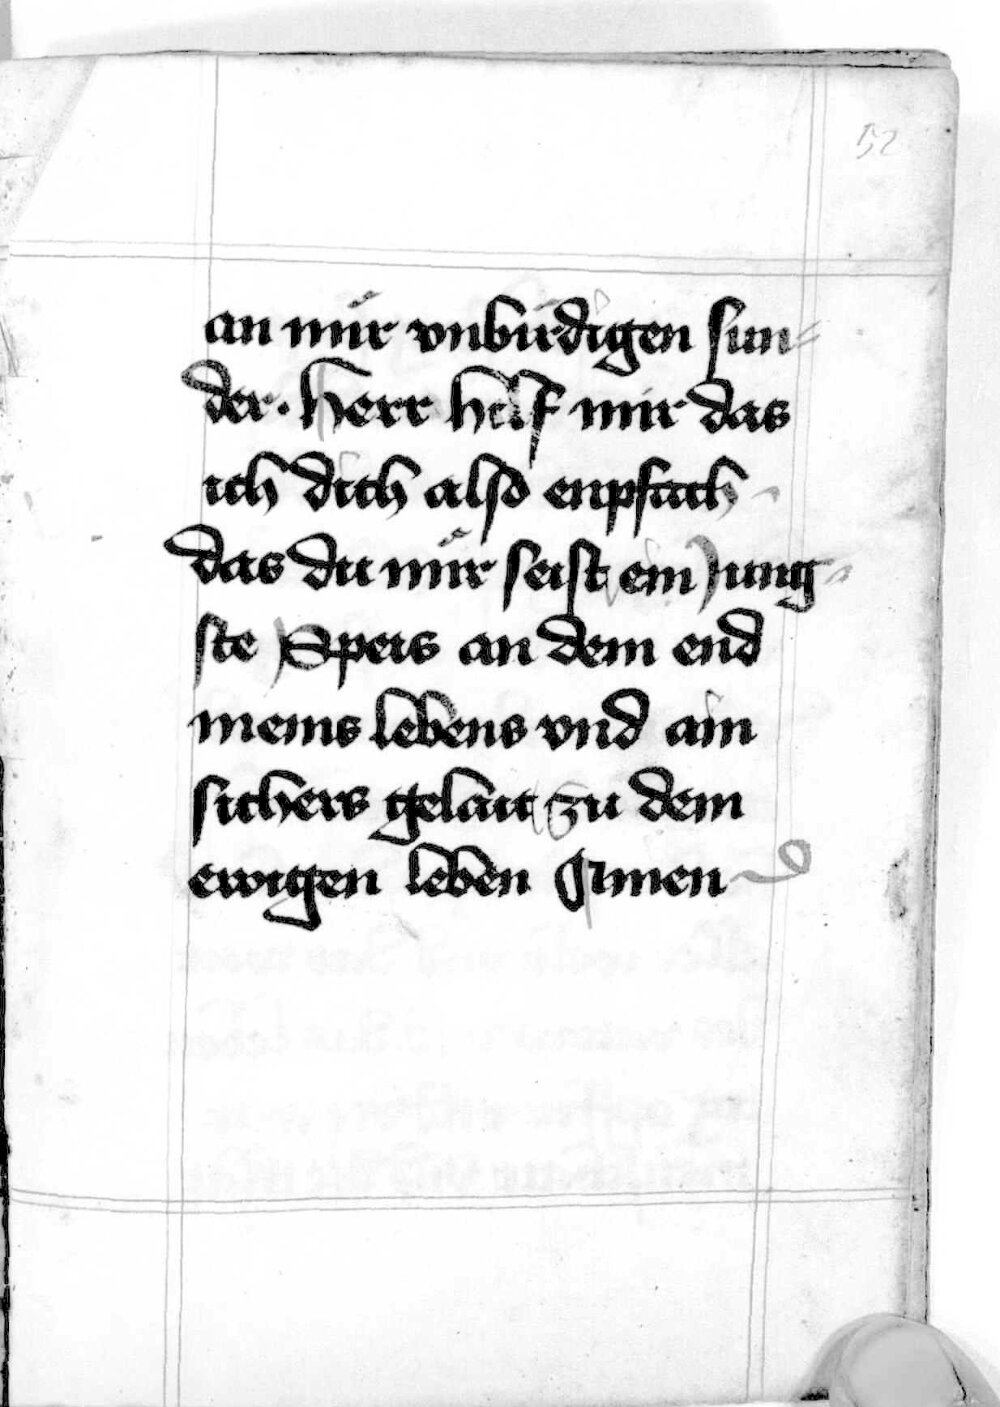 52
an mir vnbirdigen sun-
der. Herr hilf mir das
ich dich also enpfach
das du mir seist ein Jung-
ste Speis an dem end
meins lebens vnd ain
sichers gelait zu dem
ewigen leben Amen